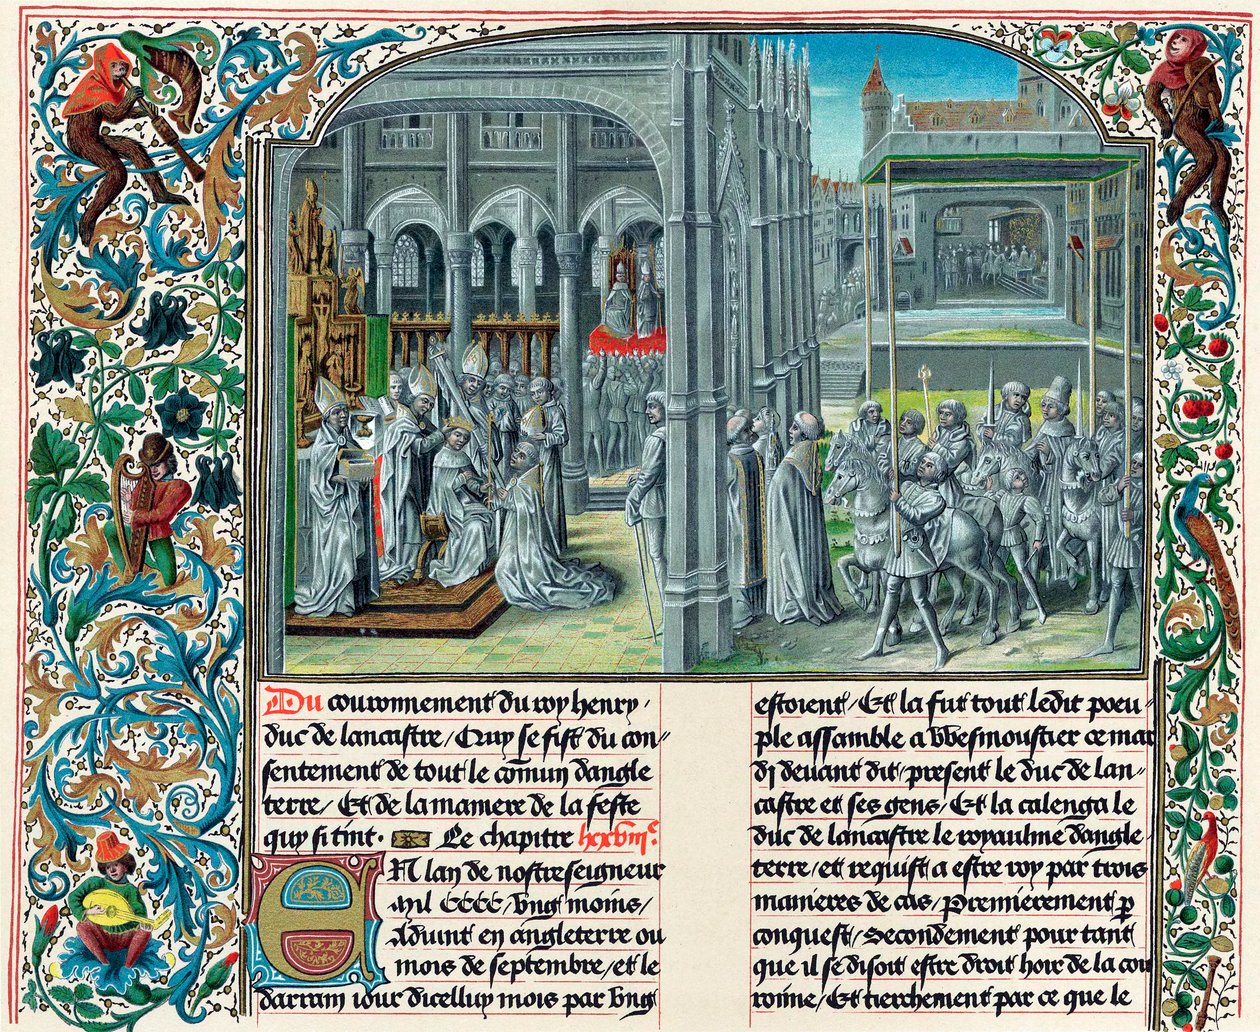 Du couronnement du roy henry,
duc de lancastre / Quy se fist du con-
sentement de tout le cõmun dangle
terre / Et de la maniere de la feste
quy si tint. Le chapitre
En lan de nostre seigneur
mil CCCC / vng moins /
Aduint en angleterre ou
mois de septembre / et le
darrain iour dicelluy mois par vng
estoient / Et la fut tout ledit peu-
ple assamble a Wesmoustier ce mar
di deuant dit / present le duc de lan-
castre et ses gens / Et la calenga le
duc de lancastre le royaulme dangle-
terre / et requist a estre roy par trois
manieres de cas / Premierement ꝑ
conquest / Secondement pour tant
que il se disoit estre droit hoir de la cou
ronne / Et tierchement par ce que le